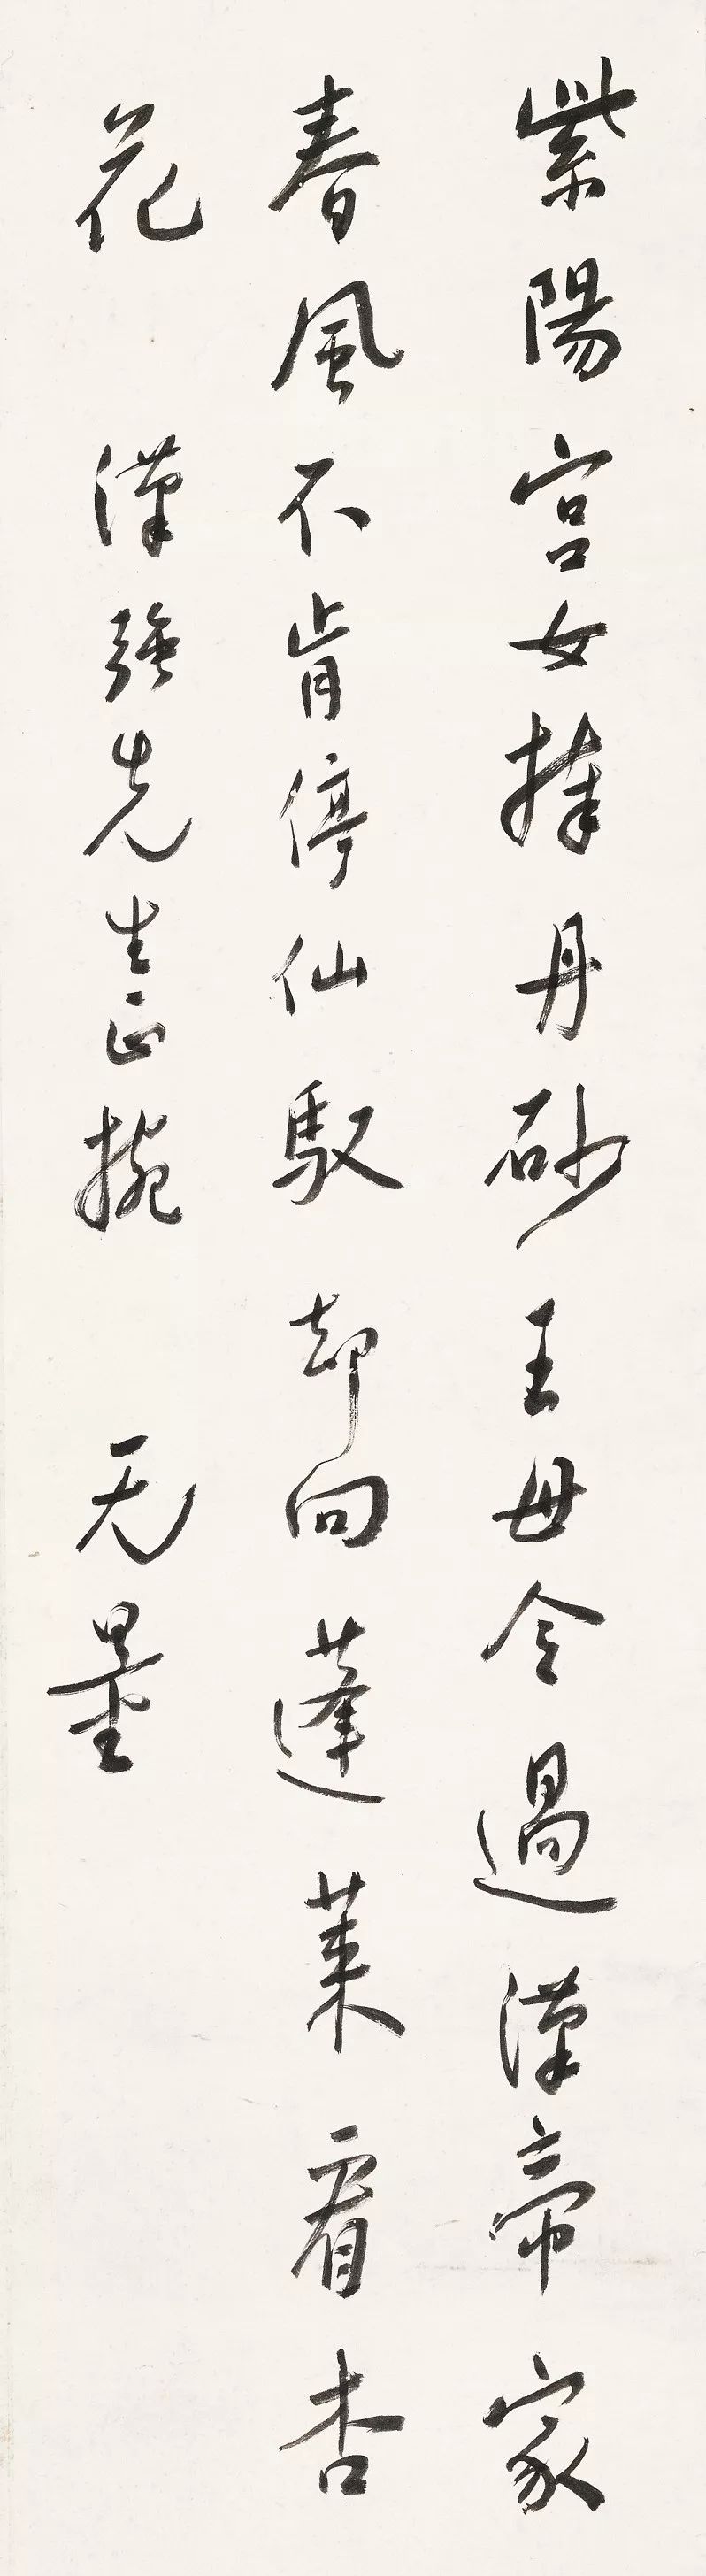 紫陽宮女捧丹砂王母令過漢帝家
春風不肯停仙馭却向蓬萊看杏
花 漢強先生正捥 无量